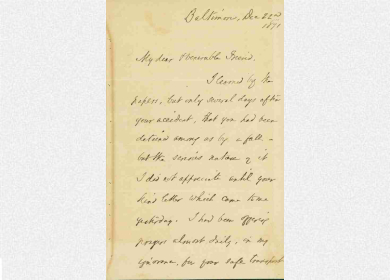 Baltimore, Dec 22nd
1871
My dear Honorable Friend,
I learned by the
papers, but only several days after
your accident, that you had been
detained among us by a fall -
but the serious nature of it
I did not appreciate until your
kind letter which came to me
yesterday. I had been offering
prayers almost daily, in my
ignorance, for your safe